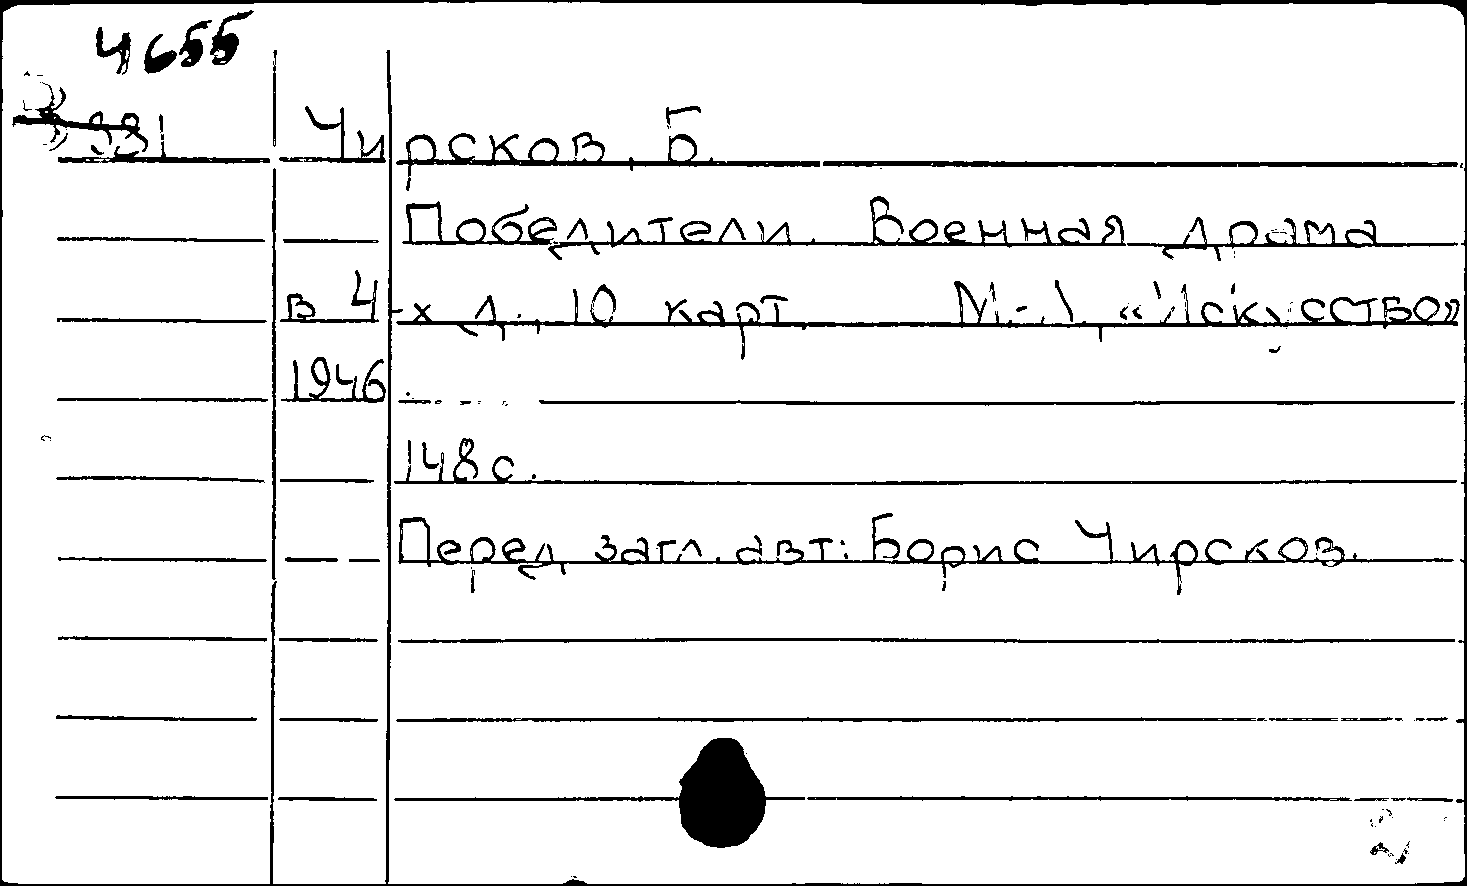 4655
Чирсков, Б.
Победители. Военная драма
в 4-х д., 10 карт. М.-Л., «Искусство»
1946.
148 с.
Перед загл. авт: Борис Чирсков.